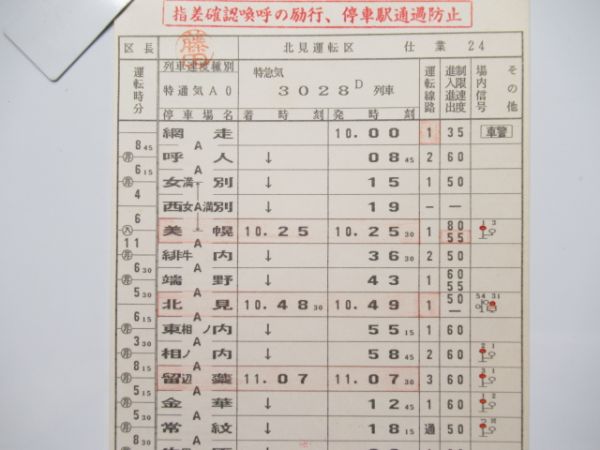 指差確認喚呼の励行、停車駅通過防止
区長 藤田 北見運転区 仕業 24
運転時分 列車速度種別 特急気 運転線路 制限速度 進入進出 場内信号 その他
特通気A0 3028D 列車
停車場名 着時刻 発時刻
網走 10.00 1 35 車警
8 45 A
呼人 ↓ 08 45 2 60
6 15 A
女満別 ↓ 15 1 50
4
西女満別 A ↓ 19 — —
6 A
美幌 10.25 10.25 30 1 80 55 1 3
11 A
緋牛内 ↓ 36 30 2 50
6 30 A
端野 ↓ 43 1 60 55
6 A
北見 10.48 30 10.49 1 50 — 54 31
6 15 A
東相ノ内 ↓ 55 15 1 60
3 30 A
相ノ内 ↓ 58 45 2 60 2 1
8 15 A
留辺蘂 11.07 11.07 30 3 60 3 1
5 15 A
金華 ↓ 12 45 1 60 1 2
5 30 A
常紋 ↓ 18 15 通 50
8 30 A